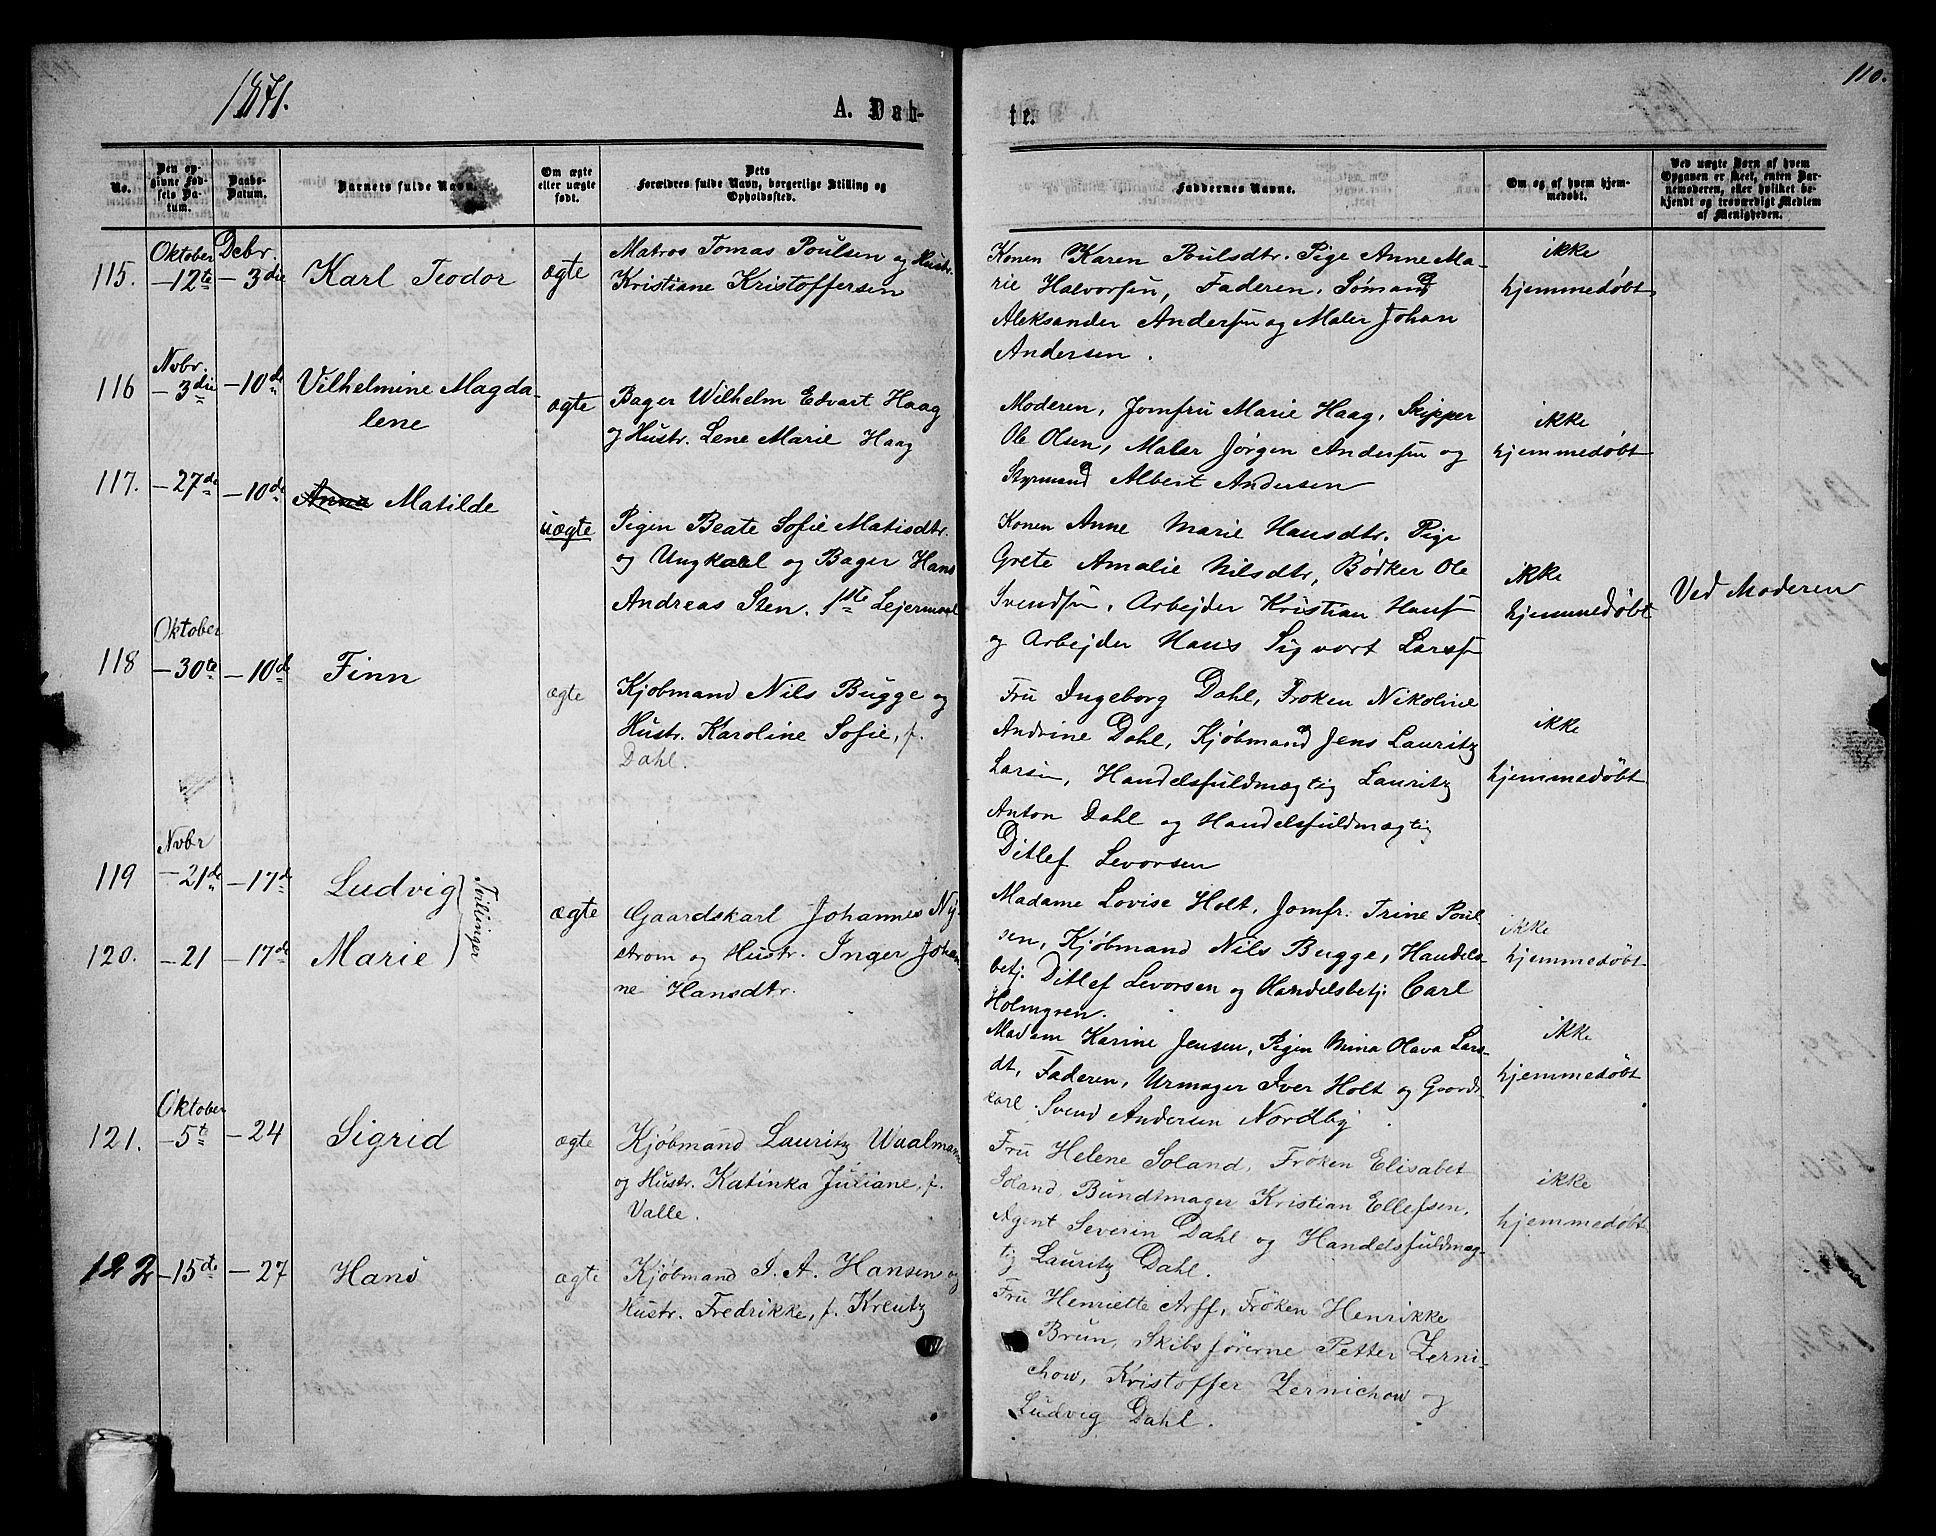 1871.
A. Døb-
te.
110.
No.
Den op-
givne Fød-
sels Da-
tum.
Daabs-
Datum.
Barnets fulde Navn.
Om ægte
eller uægte
født.
Dets
Forældres fulde Navn, borgerlige Stilling og
Opholdssted.
Faddernes Navne.
Om og af hvem hjem-
medøbt.
Ved uægte Børn af hvem
Opgaven er skeet, enten Bar-
nemoderen, eller hvilket be-
kjendt og troværdigt Medlem
af Menigheden.
115.
Oktober
-12te
Debr.
-3die
Karl Teodor
ægte
Matros Tomas Poulsen og Hustr.
Kristiane Kristoffersen
Konen Karen Poulsdtr. Pige Anne Ma-
rie Halvorsen, Faderen, Sømand
Aleksander Andersen og Maler Johan
Andersen.
ikke
hjemmedøbt
116
Nvbr.
-3die
-10de
Vilhelmine Magda-
lene
ægte
Bager Wilhelm Edvart Haag
og Hustr. Lene Marie Haag
Moderen, Jomfru Marie Haag, Skipper
Ole Olsen, Maler Jørgen Andersen og
Styrmand Albert Andersen
ikke
hjemmedøbt
117.
-27de
-10de
Anna Matilde
uægte
Pigen Beate Sofie Matisdtr.
og Ungkarl og Bager Hans
Andreas Sten. 1ste Lejermaal
Konen Anne Marie Hansdtr. Pige
Grete Amalie Nilsdtr, Bødker Ole
Svendsen, Arbejder Kristian Hansen
og Arbejder Hans Sigvort Larsen
ikke
hjemmedøbt
Ved Moderen
118
Oktober
-30te
-10de
Finn
ægte
Kjøbmand Nils Bugge og
Hustr. Karoline Sofie, f.
Dahl.
Fru Ingeborg Dahl, Frøken Nikoline
Andrine Dahl, Kjøbmand Jens Lauritz
Larsen, Handelsfuldmægtig Lauritz
Anton Dahl og Handelsfuldmægtig
Ditlef Levorsen
ikke
hjemmedøbt
119
Nvbr
-21de
-17de
Ludvig
Tvillinger
ægte
Gaardskarl Johannes Ny-
strøm og Hustr. Inger Johan-
ne Hansdtr.
Madame Lovise Holt, Jomfr. Trine Poul-
sen, Kjøbmand Nils Bugge, Handels-
betj. Ditlef Levorsen og Handelsbetj. Carl
Holmgren.
ikke
hjemmedøbt
120.
-21
-17de
Marie
Madam Karine Jensen, Pigen Mina Olava Lars-
dt, Faderen, Urmager Iver Holt og Gaards-
karl Svend Andersen Nordby.
ikke
hjemmedøbt
121.
Oktober
-5te
-24
Sigrid
ægte
Kjøbmand Lauritz Waalmann
og Hustr. Katinka Juliane, f.
Valle.
Fru Helene Soland, Frøken Elisabet
Soland, Bundtmager Kristian Ellefsen,
Agent Severin Dahl og Handelsfuldmæg-
tig Lauritz Dahl.
ikke
hjemmedøbt
122
-15de
-27
Hans
ægte
Kjøbmand I. A. Hansen og
Hustr. Fredrikke, f. Kreutz
Fru Henriette Arff, Frøken Henrikke
Brun, Skibsførerne Petter Zerni-
chow, Kristoffer Zernichow og
Ludvig Dahl.